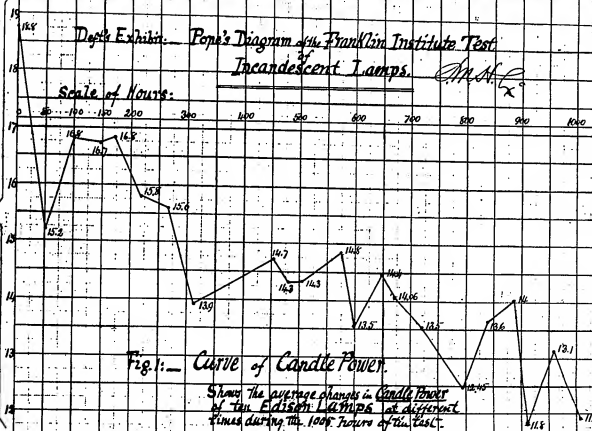 19
18.8
Deft's Exhibit:— Pope's Diagram of the Franklin Institute Test
of
Incandescent Lamps.
18
Scale of Hours:
0 50 100 150 200 300 400 500 600 700 800 900 1000
17
16.8 16.7 16.8
16
15.8 15.6
15.2
15
14.7 14.3 14.3 14.8 14.4 14.06
14
13.9 13.5 13.5 13.6 14
13
13.1
Fig. 1:— Curve of Candle Power.
12.45
Shows the average changes in Candle Power
of ten Edison Lamps at different
times during the 1005 hours of the test.
12
11.8